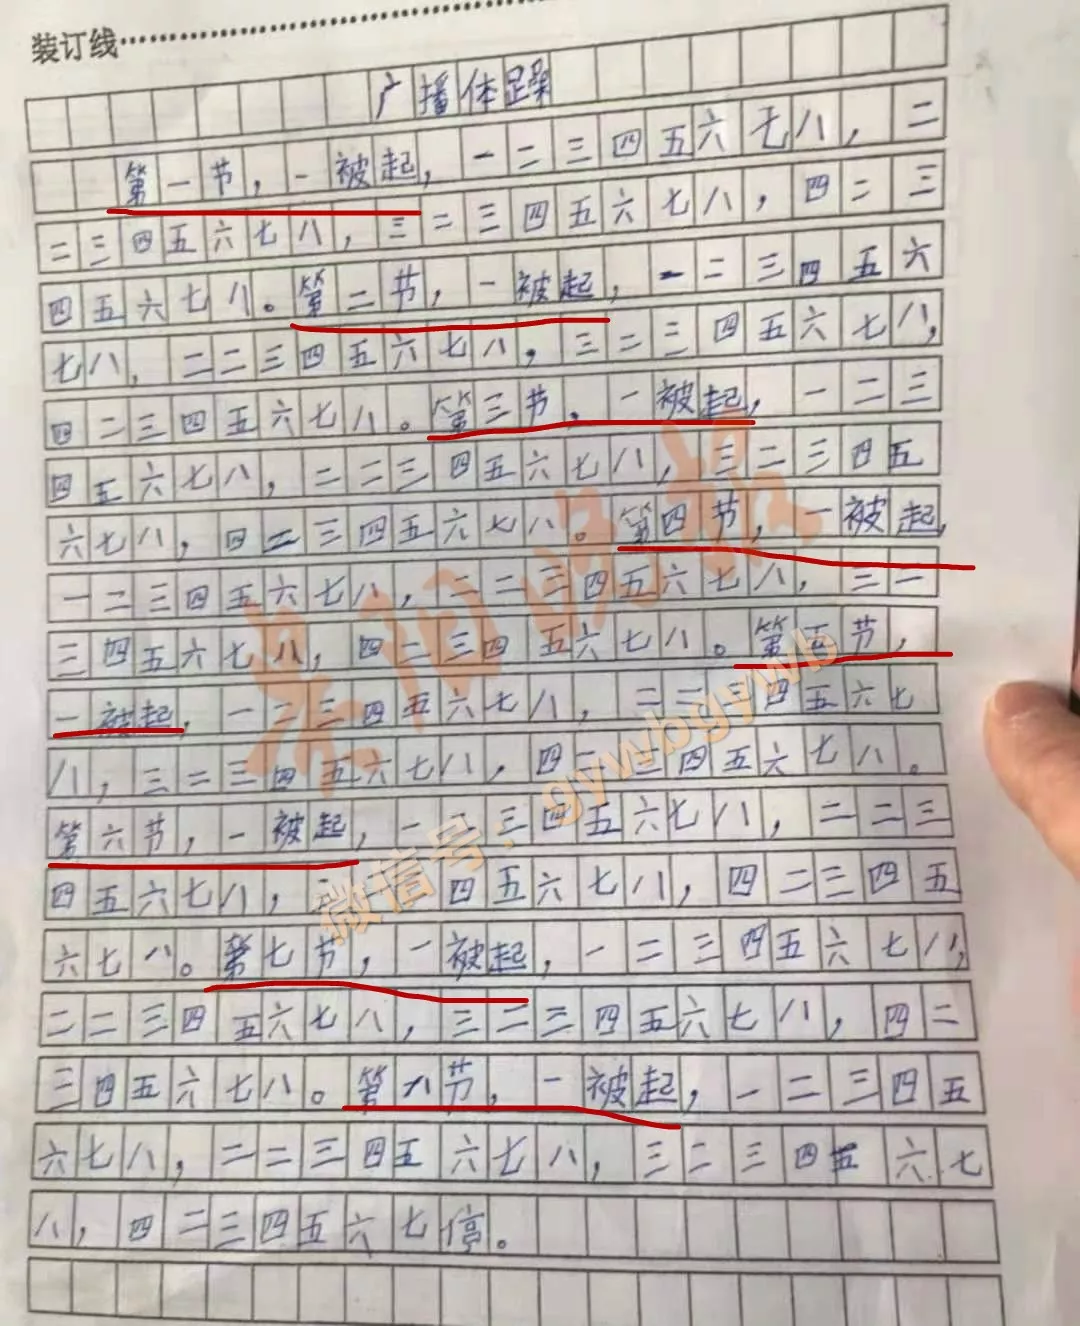 装订线
广播体躁
第一节，一被起，一二三四五六七八，二
二三四五六七八，三二三四五六七八，四二三
四五六七八。第二节，一被起，一二三四五六
七八，二二三四五六七八，三二三四五六七八，
四二三四五六七八。第三节，一被起，一二三
四五六七八，二二三四五六七八，三二三四五
六七八，四二三四五六七八。第四节，一被起，
一二三四五六七八，二二三四五六七八，三二
三四五六七八，四二三四五六七八。第五节，
一被起，一二三四五六七八，二二三四五六七
八，三二三四五六七八，四二三四五六七八。
第六节，一被起，一二三四五六七八，二二三
四五六七八，三 四五六七八，四二三四五
六七八。第七节，一被起，一二三四五六七八，
二二三四五六七八，三二三四五六七八，四二
三四五六七八。第八节，一被起，一二三四五
六七八，二二三四五六七八，三二三四五六七
八，四二三四五六七停。
微信号：gywbgywb